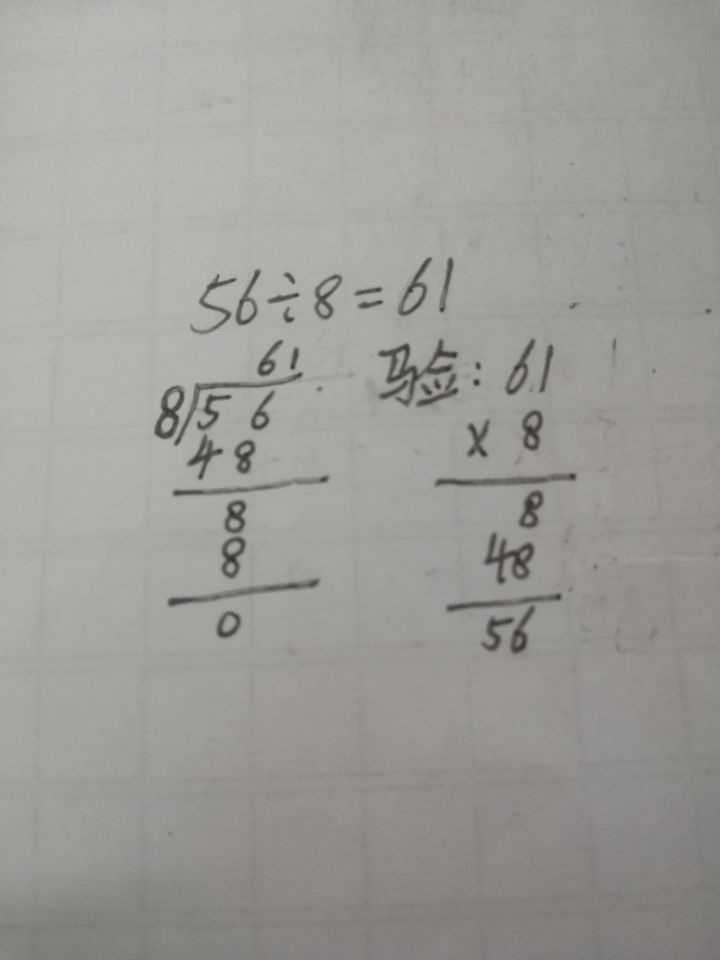 56÷8=61
61
8)56
48
8
8
0
验: 61
× 8
8
48
56